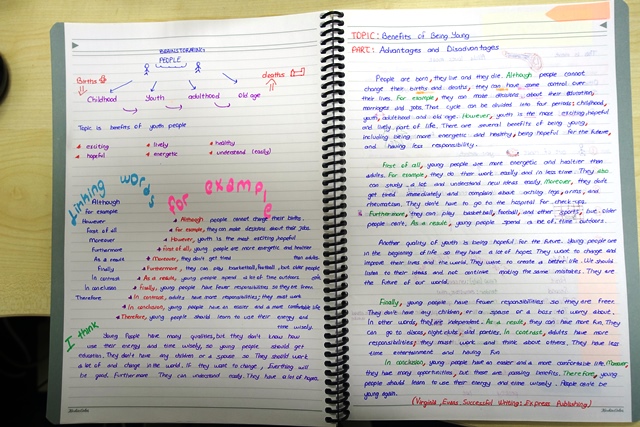 BRAINSTORMING
PEOPLE
Births
deaths
Childhood Youth adulthood Old age
Topic is benefits of youth people
exciting lively healthy
hopeful energetic understand (easily)
Linking words for example
Although
for example
However
First of all
Moreover
Furthermore
As a result
Finally
In contrast
In conclusion
Therefore
Although people cannot change their births.
for example, they can make decisions about their jobs.
However, youth is the most exciting, hopeful
first of all, young people are more energetic and healthier than adults.
Moreover, They don't get tired
Furthermore, They can play basketball, football, but older people
As a result, young people spend a lot of time outdoors
Finally, young people have fewer responsibilities so they are free.
In contrast, adults have more responsibilities; they must work
In conclusion, young people have an easier and a more comfortable life
Therefore, young people should learn to use their energy and
time wisely.
I think
Young People have many qualities, but they don't know how
use their energy and time wisely, so young people should get
education. They don't have any children or a spouse so They should work
a lot of and change in the world. If they want to change, Everything will
be good. Furthermore They can understand easily. They have a lot of hopes.
TOPIC: Benefits of Being Young
PART: Advantages and Disadvantages
People are born, they live and they die. Although people cannot
change their births and deaths, they can have some control over
their lives. For example, they can make decisions about their education,
marriages and jobs. That cycle can be divided into four periods; childhood,
youth, adulthood and old age. However, youth is the most exciting, hopeful
and lively part of life. There are several benefits of being young,
including being more energetic and healthy, being hopeful for the future,
and having less responsibility.
First of all, young people are more energetic and healthier than
adults. For example, they do their work easily and in less time. They also
can study a lot and understand new ideas easily. Moreover, they don't
get tired immediately and complain about aching legs, arms, and
rheumatism. They don't have to go to the hospital for check-ups.
Furthermore, they can play basketball, football, and other sports, but older
people can't. As a result, young people spend a lot of time outdoors.
Another quality of youth is being hopeful for the future. Young people are
in the beginning of life so they have a lot of hopes. They want to change and
improve their lives and the world. They want to create a better life. We should
listen to their ideas and not continue making the same mistakes. They are
the future of our world.
Finally, young people have fewer responsibilities so they are free.
They don't have any children, or a spouse or a boss to worry about.
In other words, they are independent. As a result, they can have more fun. They
can go to discos, nightclubs, and parties. In contrast, adults have more
responsibilities; they must work and think about others. They have less
time entertainment and having fun.
In conclusion, young people have an easier and a more comfortable life. Moreover,
they have many opportunities, but these are passing benefits. Therefore, young
people should learn to use their energy and time wisely. People can't be
young again.
(Virginia Evans: Successful Writing: Express Publishing)